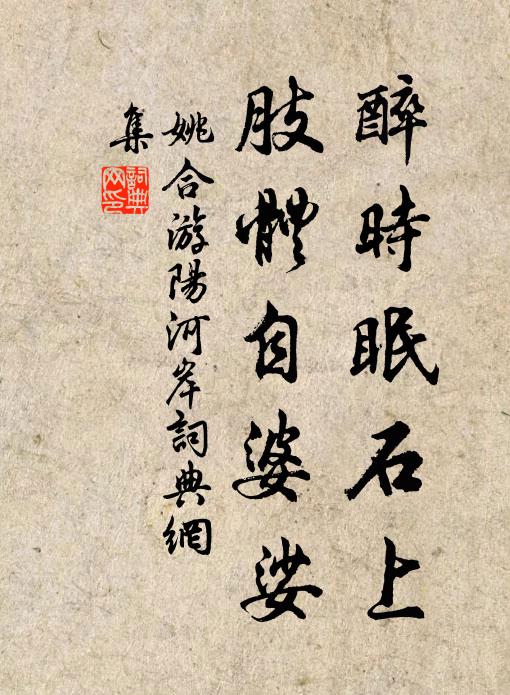 醉時眠石上
肢體自婆娑
姚合游陽河岸詞典網
集
詞典
网印